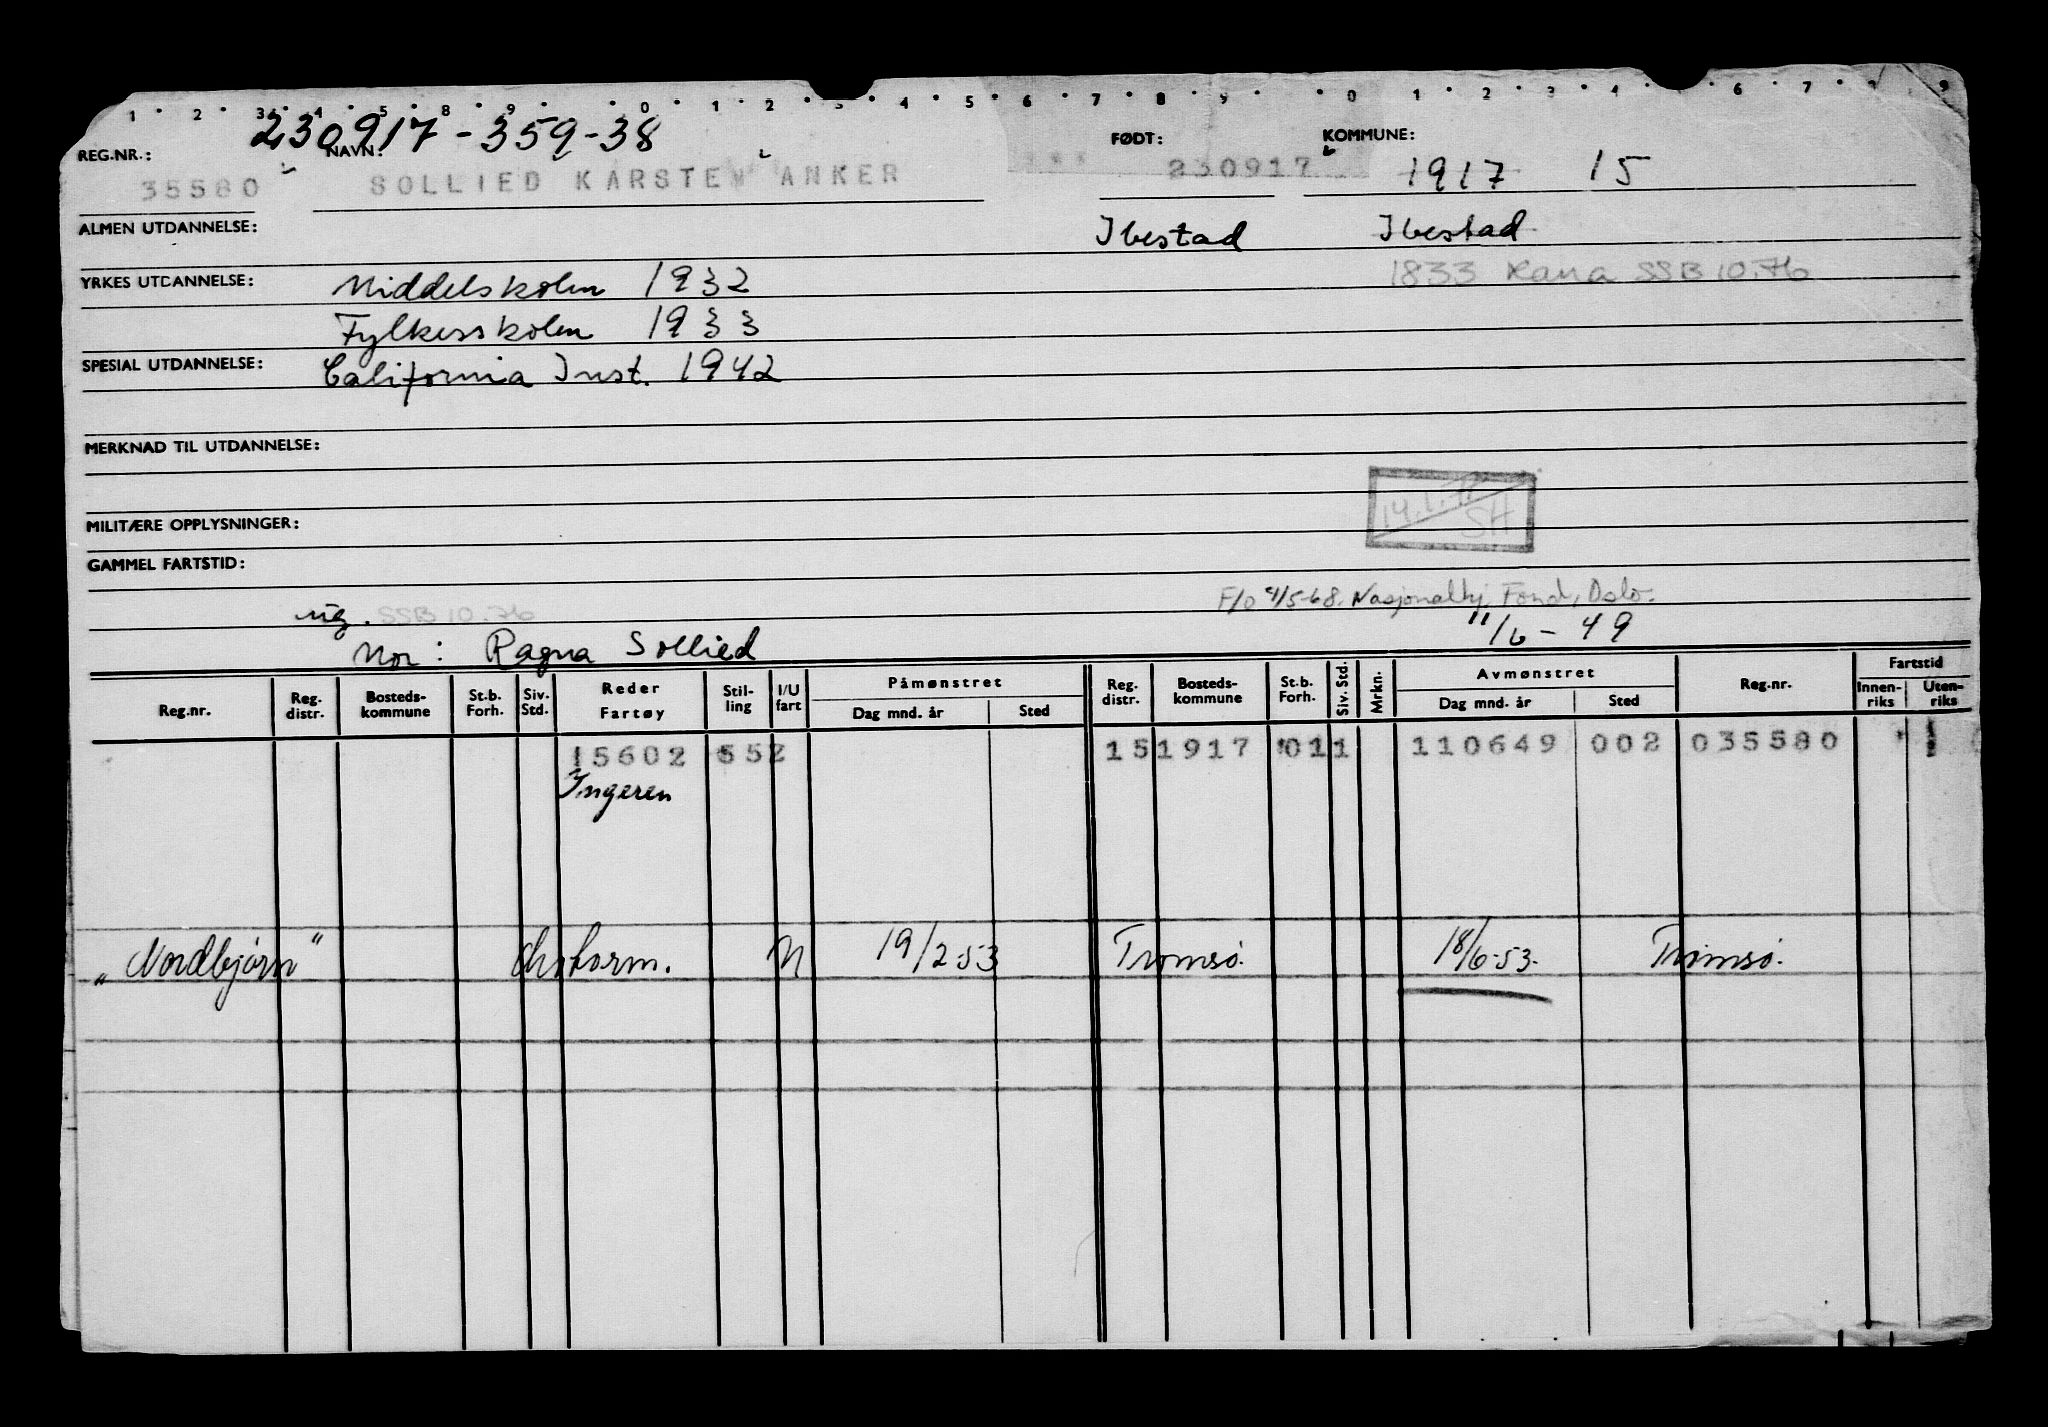 1 2 3 4 5 8 9 0 1 2 3 4 5 6 7 8 9 0 1 2 3 4 6 7 8 9
230917-359-38
REG.NR.: NAVN: FØDT: KOMMUNE:
35580 SOLLIED KARSTEN ANKER 230917 1917 15
ALMEN UTDANNELSE: Ibestad Ibestad
YRKES UTDANNELSE: Middelskolen 1932 1833 Rana SSB 10.76
Fylkesskolen 1933
SPESIAL UTDANNELSE: California Inst. 1942
MERKNAD TIL UTDANNELSE:
14.1.77 SH
MILITÆRE OPPLYSNINGER:
GAMMEL FARTSTID:
ug. SSB 10.76 F/O 4/5-68. Nasjonalhj. Fond, Oslo.
Mor: Ragna Sollied 11/6-49
Reg.nr. Reg. distr. Bosteds-kommune St.b. Forh. Siv. Std. Reder Fartøy Stil-ling I/U fart Påmønstret Dag mnd. år Sted Reg. distr. Bosteds-kommune St.b. Forh. Siv. Std. Mrkn. Avmønstret Dag mnd. år Sted Reg.nr. Fartstid Innen-riks Uten-riks
15602 552 151917 011 110649 002 035580
Ingeren
"Nordbjørn" N 19/2-53 Tromsø. 18/6-53. Tromsø.